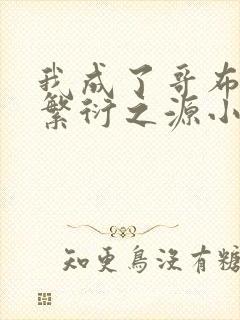 我成了哥布
繁衍之源小
知更鸟没有糖